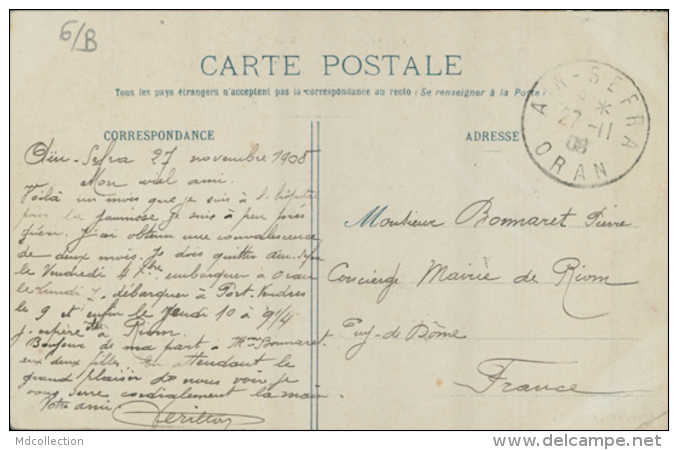 6/B
CARTE POSTALE
Tous les pays étrangers n'acceptent pas la correspondance au recto (Se renseigner à la Poste)
CORRESPONDANCE
Aïn-Sefra 27 novembre 1908
Mon vieil ami.
Voilà un mois que je suis à l'hôpital
pour la jaunisse je suis à peu près
guéri. J'ai obtenu une convalescence
de deux mois. Je dois quitter Aïn-Sefra
le Vendredi 4 embarquer à Oran
le Lundi 7, débarquer à Port-Vendres
le 9 et enfin le Jeudi 10 à 9¼
j'espère à Riom.
Bonjour de ma part à Mme Bonnaret
eux deux filles. En attendant le
grand plaisir de nous voir je
vous serre cordialement la main
Votre ami
ADRESSE
Monsieur Bonnaret Pierre
Concierge Mairie de Riom
Puy-de Dôme
France
AIN-SEFRA
27-11
08
ORAN
Mdcollection
www.delcampe.net